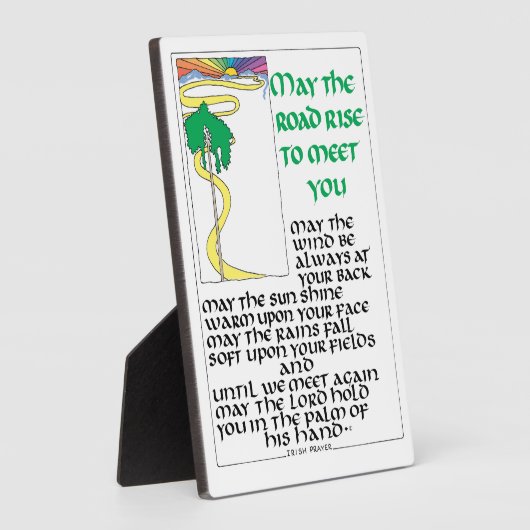 MAY THE
ROAD RISE
TO MEET
YOU
MAY THE
WIND BE
ALWAYS AT
YOUR BACK
MAY THE SUN SHINE
WARM UPON YOUR FACE
MAY THE RAINS FALL
SOFT UPON YOUR FIELDS
AND
UNTIL WE MEET AGAIN
MAY THE LORD HOLD
YOU IN THE PALM OF
HIS HAND
IRISH PRAYER